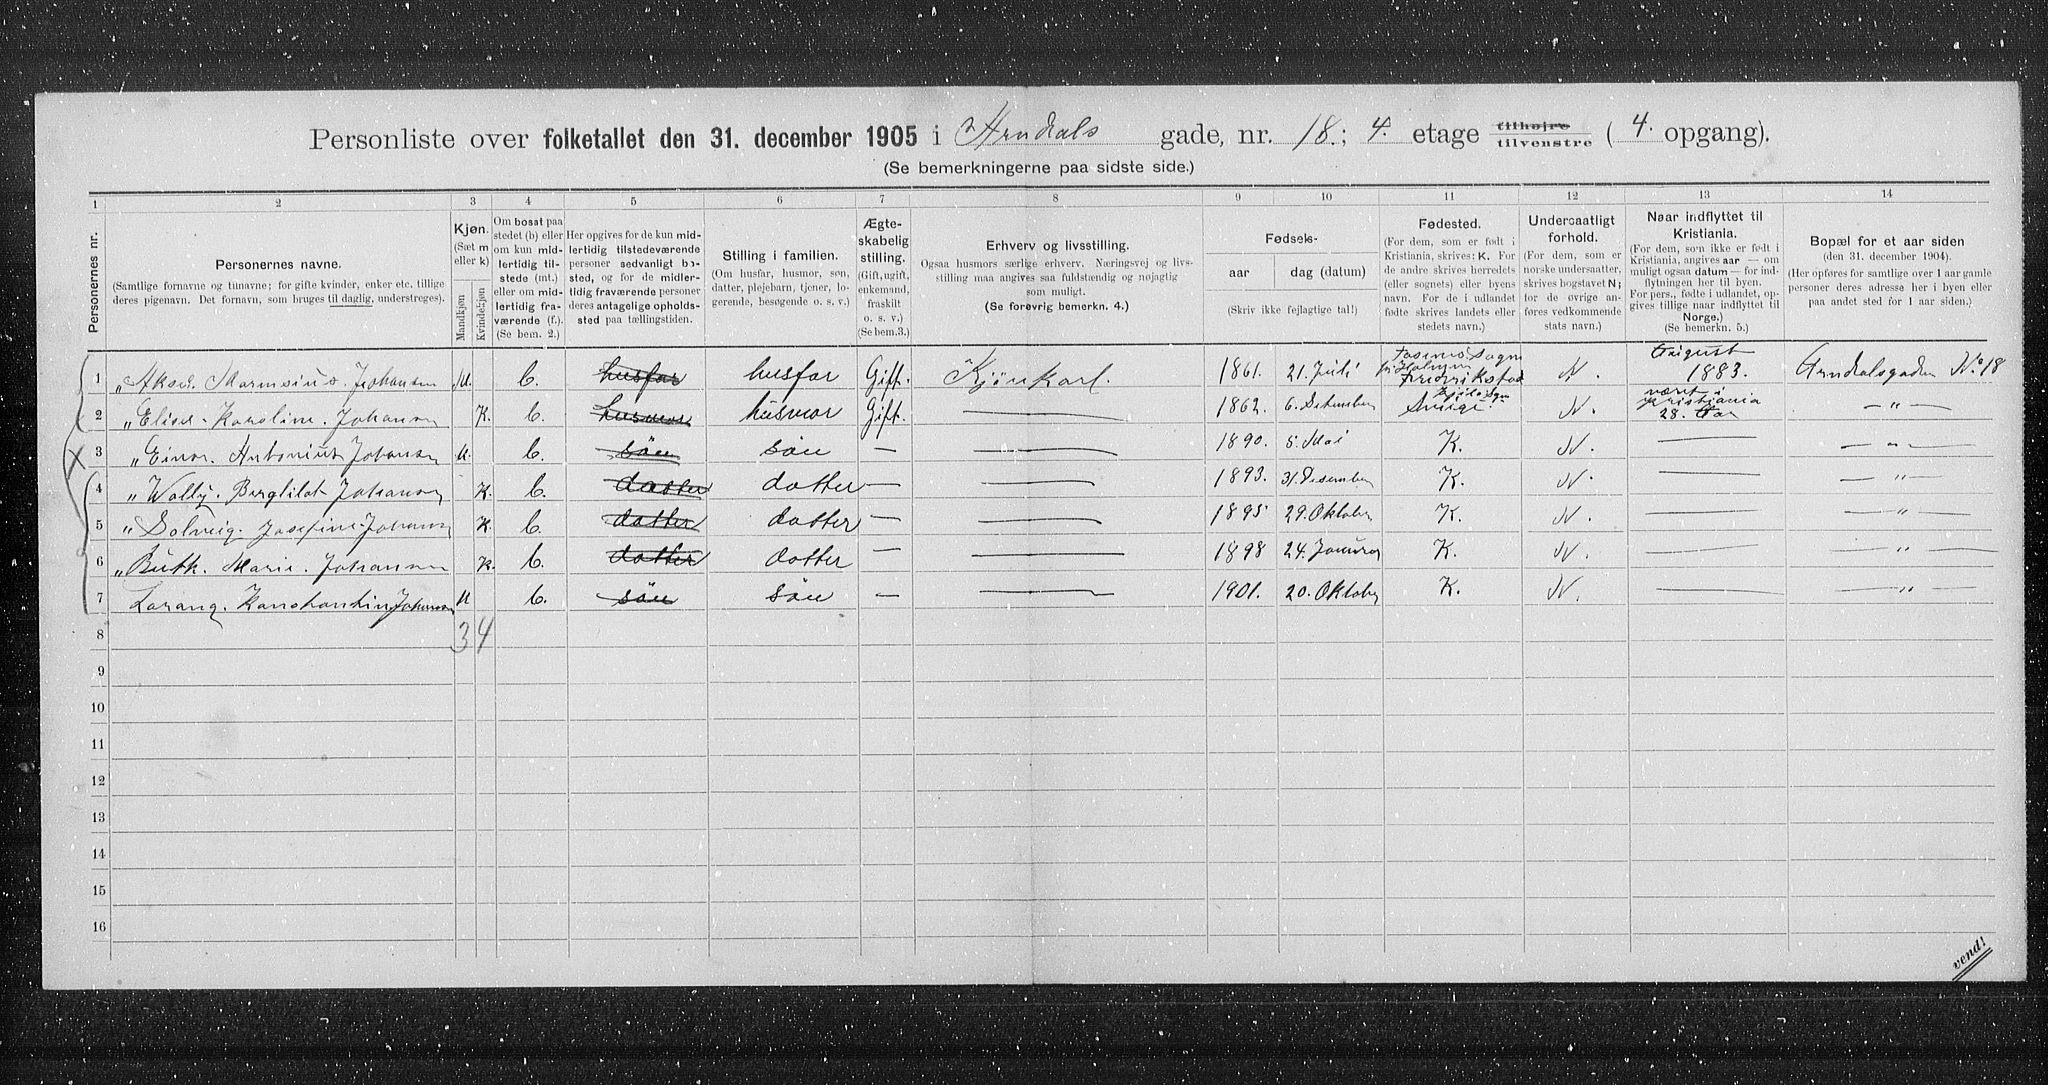 Personliste over folketallet den 31. december 1905 i Arndals gade, nr. 18.; 4. etage tilhøjre tilvenstre ( 4. opgang).
(Se bemerkningerne paa sidste side.)
1 2 3 4 5 6 7 8 9 10 11 12 13 14
Personernes nr.
Personernes navne.
(Samtlige fornavne og tilnavne; for gifte kvinder, enker etc. tillige deres pigenavn. Det fornavn, som bruges til daglig, understreges).
Kjøn.
(Sæt m eller k)
Mandkjøn
Kvindekjøn
Om bosat paa stedet (b) eller om kun midlertidig tilstede (mt.) eller om midlertidig fraværende (f.). (Se bem. 2.)
Her opgives for de kun midlertidig tilstedeværende personer sedvanligt bosted, og for de midlertidig fraværende personer deres antagelige opholdssted paa tællingstiden.
Stilling i familien.
(Om husfar, husmor, søn, datter, plejebarn, tjener, logerende, besøgende o. s. v.)
Ægteskabelig stilling.
(Gift, ugift, enkemand, fraskilt o. s. v.) (Se bem. 3.)
Erhverv og livsstilling.
Ogsaa husmors særlige erhverv. Næringsvej og livsstilling maa angives saa fuldstændig og nøjagtig som muligt.
(Se forøvrig bemerkn. 4.)
Fødsels-
aar dag (datum)
(Skriv ikke fejlagtige tal!)
Fødested.
(For dem, som er født i Kristiania, skrives: K. For de andre skrives herredets (eller sognets) eller byens navn. For de i udlandet fødte skrives landets eller stedets navn.)
Undersaatligt forhold.
(For dem, som er norske undersaatter, skrives bogstavet N; for de øvrige anføres vedkommende stats navn.)
Naar indflyttet til Kristiania.
(For dem, som ikke er født i Kristiania, angives aar — om muligt ogsaa datum — for indflytningen her til byen. For pers., fødte i udlandet, opgives tillige naar indflyttet til Norge.)
(Se bemerkn. 5.)
Bopæl for et aar siden
(den 31. december 1904).
(Her opføres for samtlige over 1 aar gamle personer deres adresse her i byen eller paa andet sted for 1 aar siden.)
1 Aksel. Marensius. Johansen M. b. husfar husfar Gift. Kjørekarl. 1861. 21. Juli Fredrikstad N. August 1883. Arndalsgaden No 18
2 Elise. Karoline. Johansen K. b. husmor husmor Gift. — 1862. 6. Desember Sverige. N. været i Kristiania 28. Aar — „ —
3 Einar. Antonius Johansen M. b. søn søn — — 1890. 5. Mai K. N. — — „ —
4 Wally. Bergliot Johansen K. b. datter datter — — 1893. 31. Desember K. N. — — „ —
5 Solveig. Josefine. Johansen K. b. datter datter — — 1895 29. Oktober K. N. — — „ —
6 Ruth. Marie. Johansen K. b. datter datter — — 1898 24. Januar K. N. — — „ —
7 Lorang. Konstantin Johansen M b. søn søn — — 1901. 20. Oktober K. N. — — „ —
8 3 4
9
10
11
12
13
14
15
16
vend!